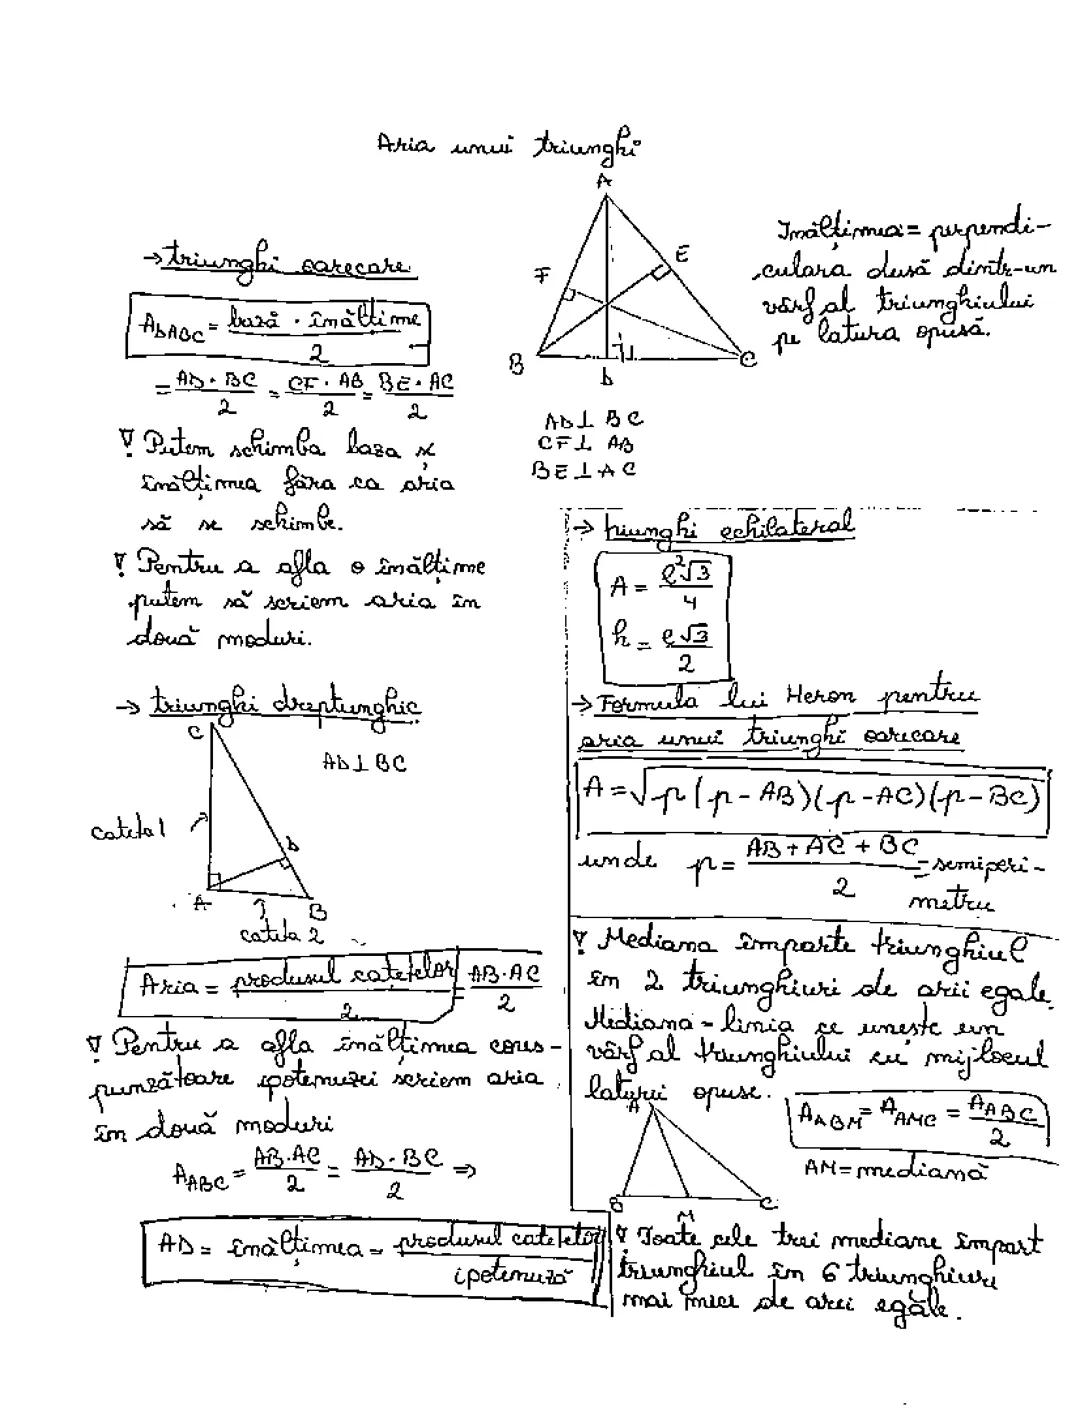 Aria unui triunghi
→ triunghi oarecare
A_ΔABC = bază · înălțime / 2
= AD · BC / 2 = CF · AB / 2 = BE · AC / 2
∇ Putem schimba baza și
înălțimea fără ca aria
să se schimbe.
∇ Pentru a afla o înălțime
putem să scriem aria în
două moduri.
A
F
E
B
D
C
AD ⊥ BC
CF ⊥ AB
BE ⊥ AC
Înălțimea = perpendi-
culara dusă dintr-un
vârf al triunghiului
pe latura opusă.
→ triunghi dreptunghic
C
AD ⊥ BC
cateta 1
D
A
B
cateta 2
Aria = produsul catetelor / 2 = AB·AC / 2
∇ Pentru a afla înălțimea cores-
punzătoare ipotenuzei scriem aria
în două moduri
A_ABC = AB·AC / 2 = AD·BC / 2 ⇒
AD = înălțimea = produsul catetelor / ipotenuză
→ triunghi echilateral
A = l²√3 / 4
h = l√3 / 2
→ Formula lui Heron pentru
aria unui triunghi oarecare
A = √p(p-AB)(p-AC)(p-BC)
unde p = AB + AC + BC / 2 = semiperi-
metru
∇ Mediana împarte triunghiul
în 2 triunghiuri de arii egale.
Mediana - linia ce unește un
vârf al triunghiului cu mijlocul
laturii opuse.
A
B
M
C
A_ABM = A_AMC = A_ABC / 2
AM = mediană
∇ Toate cele trei mediane împart
triunghiul în 6 triunghiuri
mai mici de arii egale.